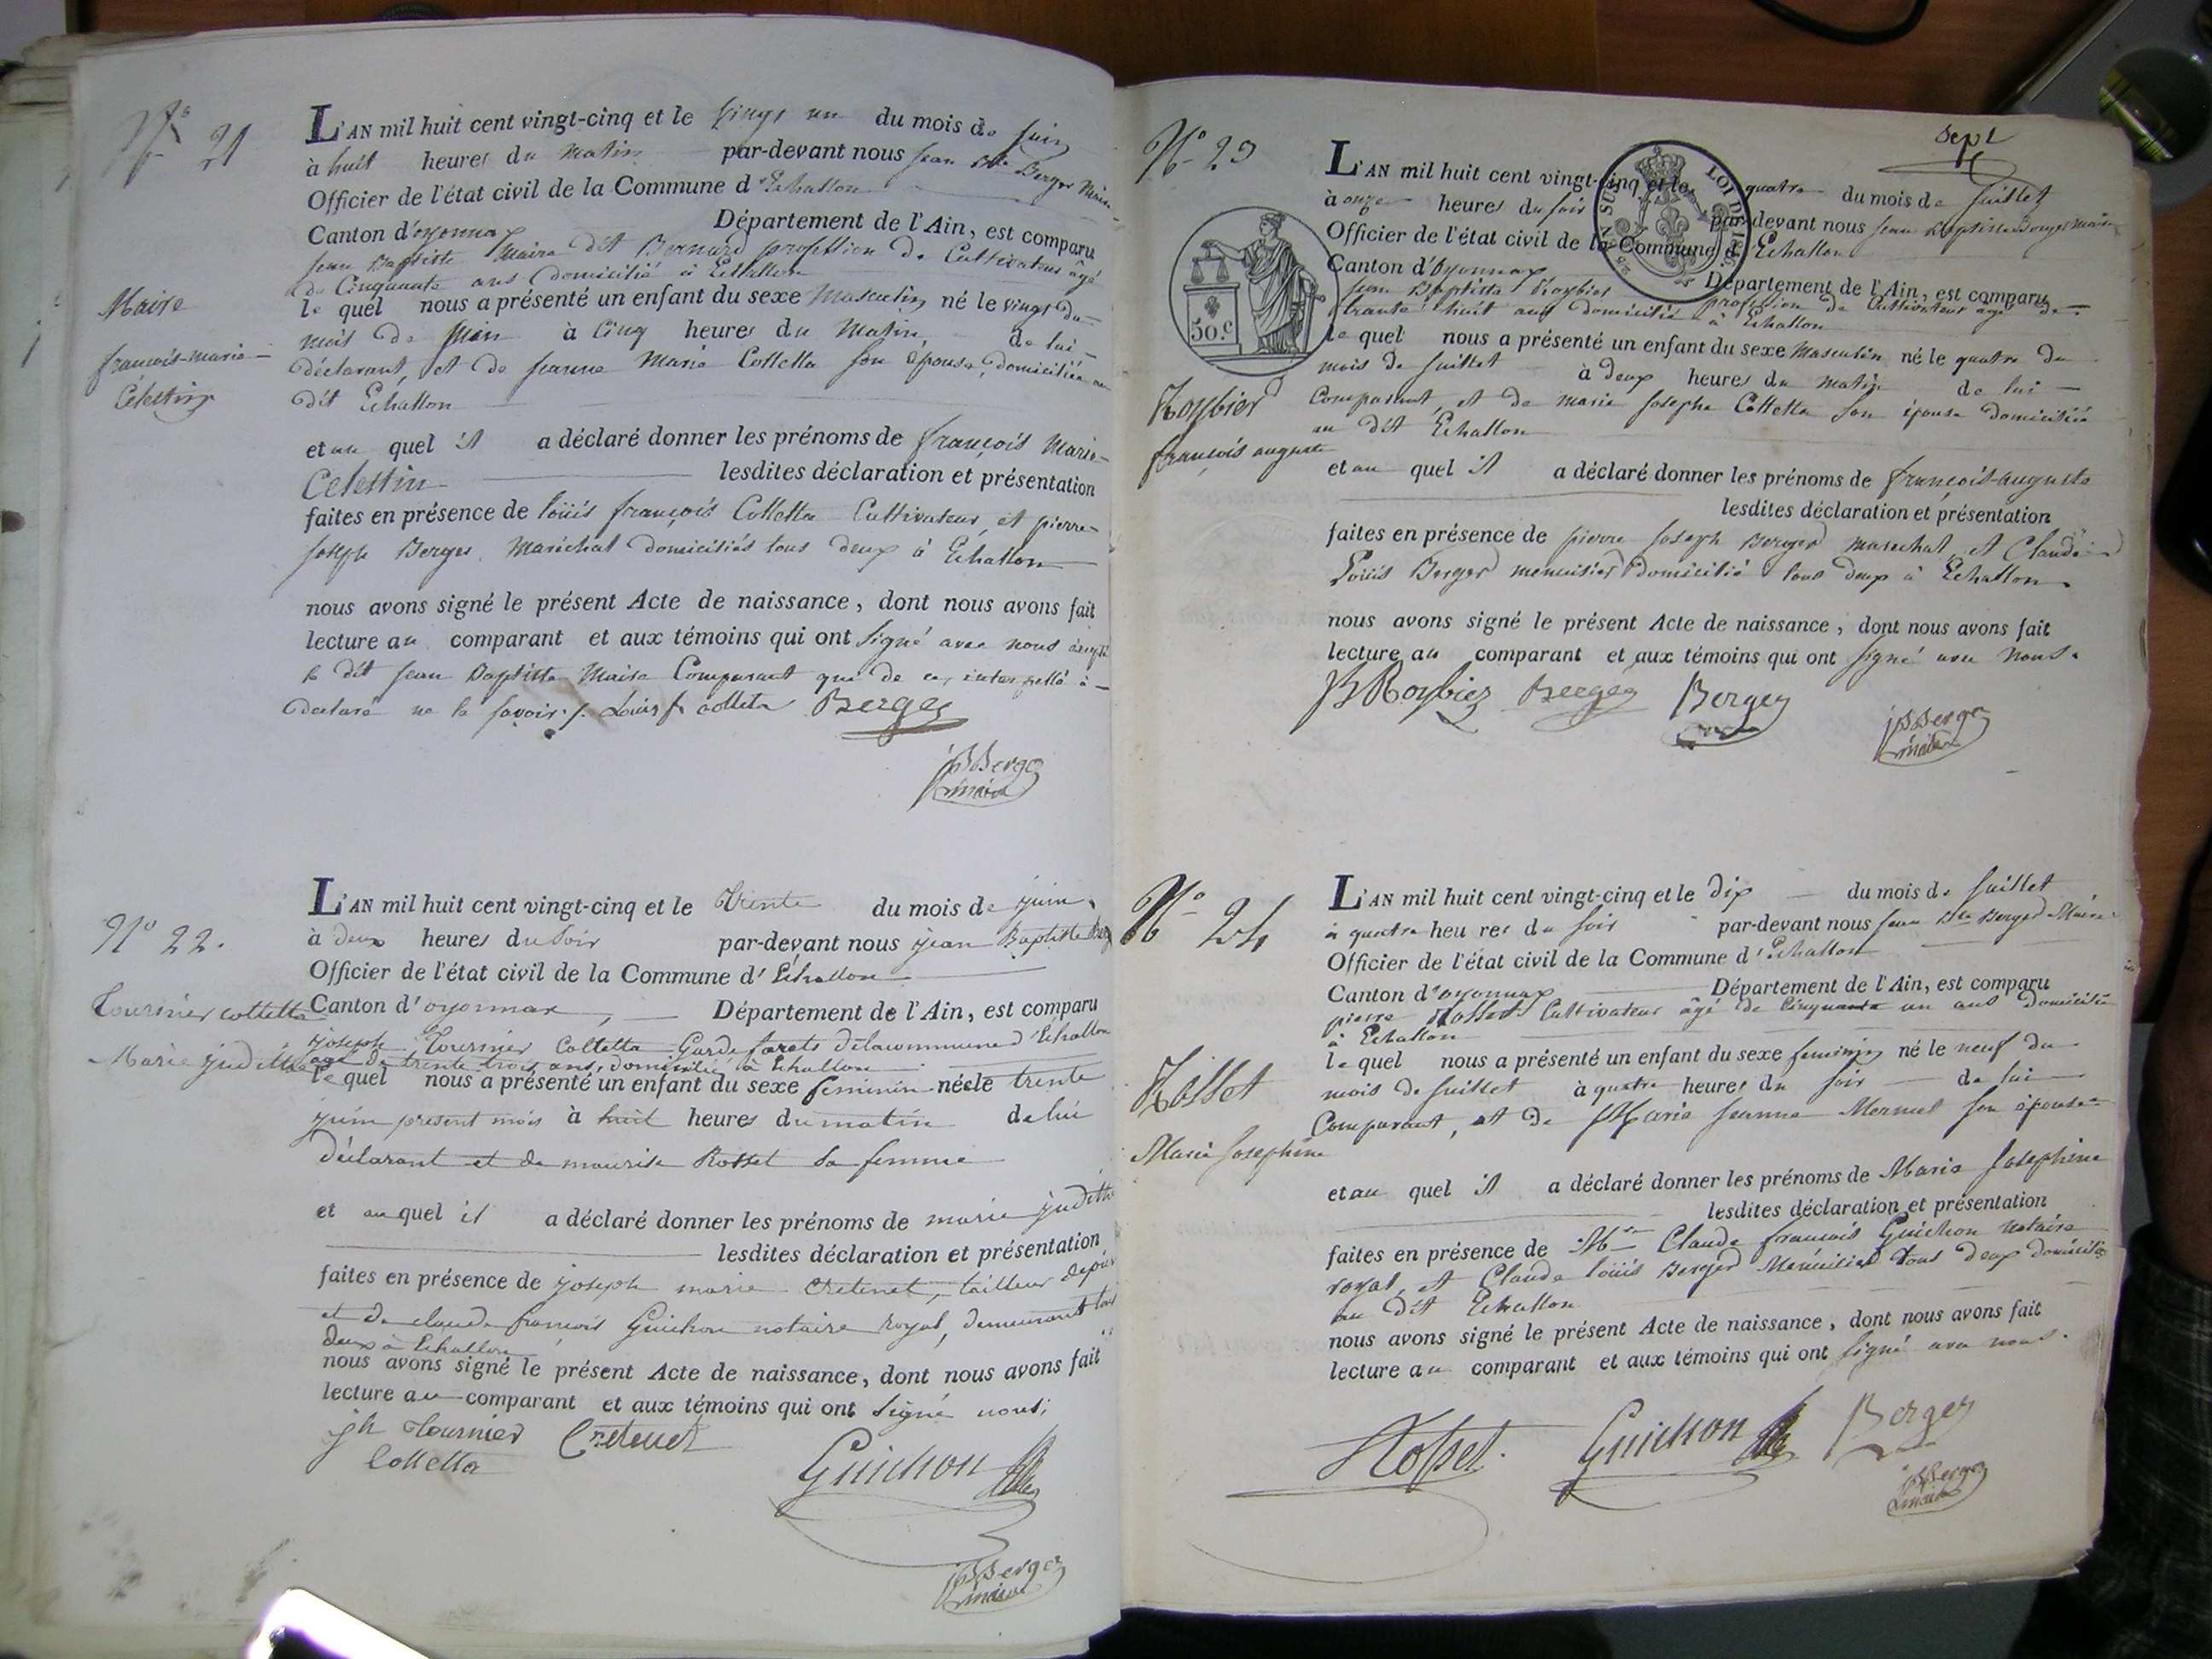 N° 21
L'AN mil huit cent vingt-cinq et le vingt un du mois de juin
à huit heures du matin par-devant nous jean Bte Berger Maire
Officier de l'état civil de la Commune d'Echallon
Canton d'oyonnax Département de l'Ain, est comparu
jean Baptiste Maire dit Bernard profession de Cultivateur âgé
de Cinquante ans domicilié à Echallon
le quel nous a présenté un enfant du sexe Masculin né le vingt du
mois de juin à Cinq heures du Matin de lui
déclarant, et de jeanne Marie Colletta son épouse, domiciliée au
dit Echallon
Maire
françois-marie-
Célestin
et au quel il a déclaré donner les prénoms de françois Marie-
Celestin lesdites déclaration et présentation
faites en présence de loüis françois Colletta Cultivateur, et pierre-
joseph Berger Maréchal domiciliés tous deux à Echallon
nous avons signé le présent Acte de naissance, dont nous avons fait
lecture au comparant et aux témoins qui ont signé avec nous
le dit jean Baptiste Maire Comparant qui de ce, interpellé à
declaré ne le savoir. Louis f colleta Berger
jBBerger
maire
N° 22.
L'AN mil huit cent vingt-cinq et le Trente du mois de juin
à deux heures du soir par-devant nous jean Baptiste Berg
Officier de l'état civil de la Commune d'Echallon
Canton d'oyonnax, Département de l'Ain, est comparu
joseph Tournier Colletta Garde forets de la commune d'Echallon
agé de trente trois ans, domicilié à Echallon
le quel nous a présenté un enfant du sexe feminin née le trente
juin present mois à huit heures du matin de lui
déclarant et de maurise Rosset sa femme
Tournier colletta
Marie juditthe
et au quel il a déclaré donner les prénoms de marie juditthe
lesdites déclaration et présentation
faites en présence de joseph marie Cretenet, tailleur
et de claude françois Guichon notaire royal, demeurant tous
deux à Echallon
nous avons signé le présent Acte de naissance, dont nous avons fait
lecture au comparant et aux témoins qui ont signé nous;
jh Tournier Cretenet
Colletta
Guichon
jBBerger
maire
sept
N° 23
L'AN mil huit cent vingt-cinq et le quatre du mois de juillet
à onze heures du soir par-devant nous jean Baptiste Berger maire
Officier de l'état civil de la Commune d'Echallon
Canton d'Oyonnax Département de l'Ain, est comparu
jean Baptiste Roybier profession de Cultivateur agé de
trante huit ans domicilié à Echallon
le quel nous a présenté un enfant du sexe Masculin né le quatre du
mois de juillet à deux heures du matin de lui
Comparant, et de marie josephe Colletta son épouse domiciliée
au dit Echallon
50.c
Roybier
françois auguste
et au quel il a déclaré donner les prénoms de françois-auguste
lesdites déclaration et présentation
faites en présence de pierre joseph Berger marechal, et Claude
Loüis Berger menuisier domicilié tous deux à Echallon
nous avons signé le présent Acte de naissance, dont nous avons fait
lecture au comparant et aux témoins qui ont signé avec nous.
JBRoybier Berger Berger
jBBerger
maire
N° 24
L'AN mil huit cent vingt-cinq et le dix du mois de juillet
à quatre heures du soir par-devant nous jean Bte Berger Maire
Officier de l'état civil de la Commune d'Echallon
Canton d'oyonnax Département de l'Ain, est comparu
pierre Rosset Cultivateur âgé de Cinquante un ans domicilié
à Echallon
le quel nous a présenté un enfant du sexe feminin né le neuf du
mois de juillet à quatre heures du soir de lui
Comparant, et de Marie jeanne Mermet son épouse
Rosset
Marie josephine
et au quel il a déclaré donner les prénoms de Marie josephine
lesdites déclaration et présentation
faites en présence de Claude françois Guichon notaire
royal, et Claude loüis Berger Menuisier tous deux domiciliés
au dit Echallon
nous avons signé le présent Acte de naissance, dont nous avons fait
lecture au comparant et aux témoins qui ont signé avec nous.
Rosset. Guichon Berger
jBBerger
maire